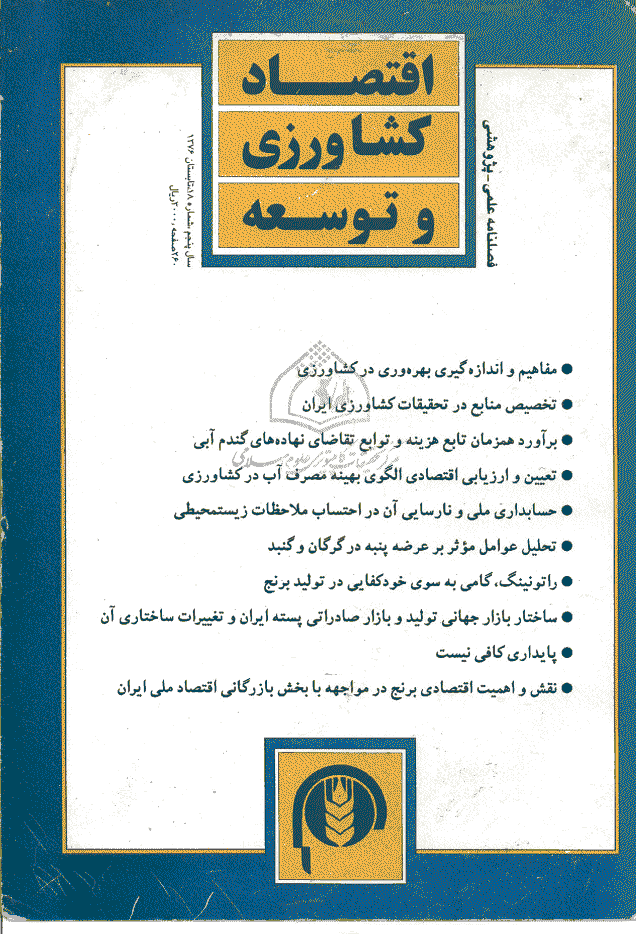 اقتصاد
کشاورزی
و توسعه
فصلنامه علمی - پژوهشی
سال پنجم، شماره ۱۸، تابستان ۱۳۷۶
۲۶۰ صفحه، ۲۰۰۰ ریال
● مفاهیم و اندازه‌گیری بهره‌وری در کشاورزی
● تخصیص منابع در تحقیقات کشاورزی ایران
● برآورد همزمان تابع هزینه و توابع تقاضای نهاده‌های گندم آبی
● تعیین و ارزیابی اقتصادی الگوی بهینه مصرف آب در کشاورزی
● حسابداری ملی و نارسایی آن در احتساب ملاحظات زیستمحیطی
● تحلیل عوامل مؤثر بر عرضه پنبه در گرگان و گنبد
● راتونینگ، گامی به سوی خودکفایی در تولید برنج
● ساختار بازار جهانی تولید و بازار صادراتی پسته ایران و تغییرات ساختاری آن
● پایداری کافی نیست
● نقش و اهمیت اقتصادی برنج در مواجهه با بخش بازرگانی اقتصاد ملی ایران
مرکز تحقیقات کامپیوتری علوم اسلامی